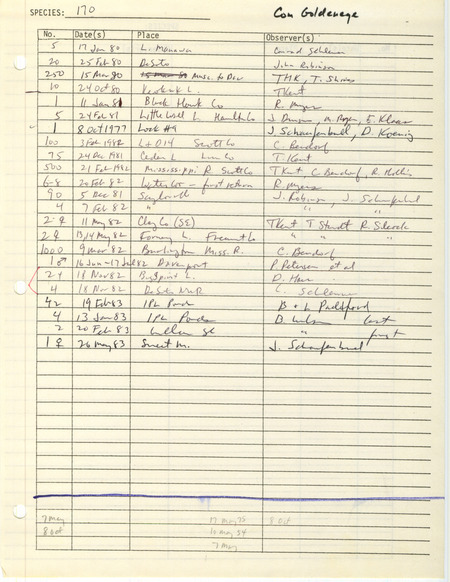 SPECIES: 170 Com Goldeneye
No. Date(s) Place Observer(s)
5 17 Jan 80 L. Manawa
20 25 Feb 80 DeSoto John Robinson
250 15 Mar 80 Musc. to Dav THK, T. Shires
10 24 Oct 80 Keokuk L. TKent
1 11 Jan 81 Black Hawk Co R. Myers
5 24 Feb 81 Little Wall L Hamilton Co J. Dinsmore, E. Klaas
1 8 Oct 1977 Lock #9 J. Schaufenbuel, D. Koenig
100 3 Feb 1982 L+D 14 Scott Co C. Bendorf
75 24 Dec 1981 Cedar L Linn Co T. Kent
500 21 Feb 1982 Mississippi R. Scott Co TKent, C. Bendorf, R. Hollis
6-8 20 Feb 82 Waterloo - first return R. Myers
90 5 Dec 81 Saylorville J. Robinson, J. Schaufenbuel
4 7 Feb 82 " " "
2 ♀ 11 May 82 Clay Co (SE) TKent T Staudt R. Slecole
2 ♀ 13,14 May 82 Fremont Co
1000 9 Mar 82 Burlington Miss. R. C. Bendorf
1 ♂ 16 Jun-17 Jul 82 Davenport P. Petersen et al
24 18 Nov 82 Big Spirit L.
4 18 Nov 82 DeSoto NWR
42 19 Feb 83 IPL Pond B + L Padelford
4 13 Jan 83 IPL Ponds B. Wilson last
2 20 Feb 83 Willow Sl " first
1 ♀ 26 May 83 Sweet M. J. Schaufenbuel
7 May 17 May 75 8 Oct
8 Oct 10 May 54
7 May